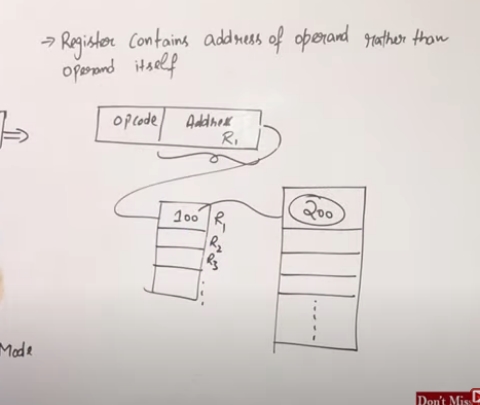 → Register contains address of operand rather than
operand itself
opcode Address
R1
100 R1
R2
R3
200
Mode
Don't Mis